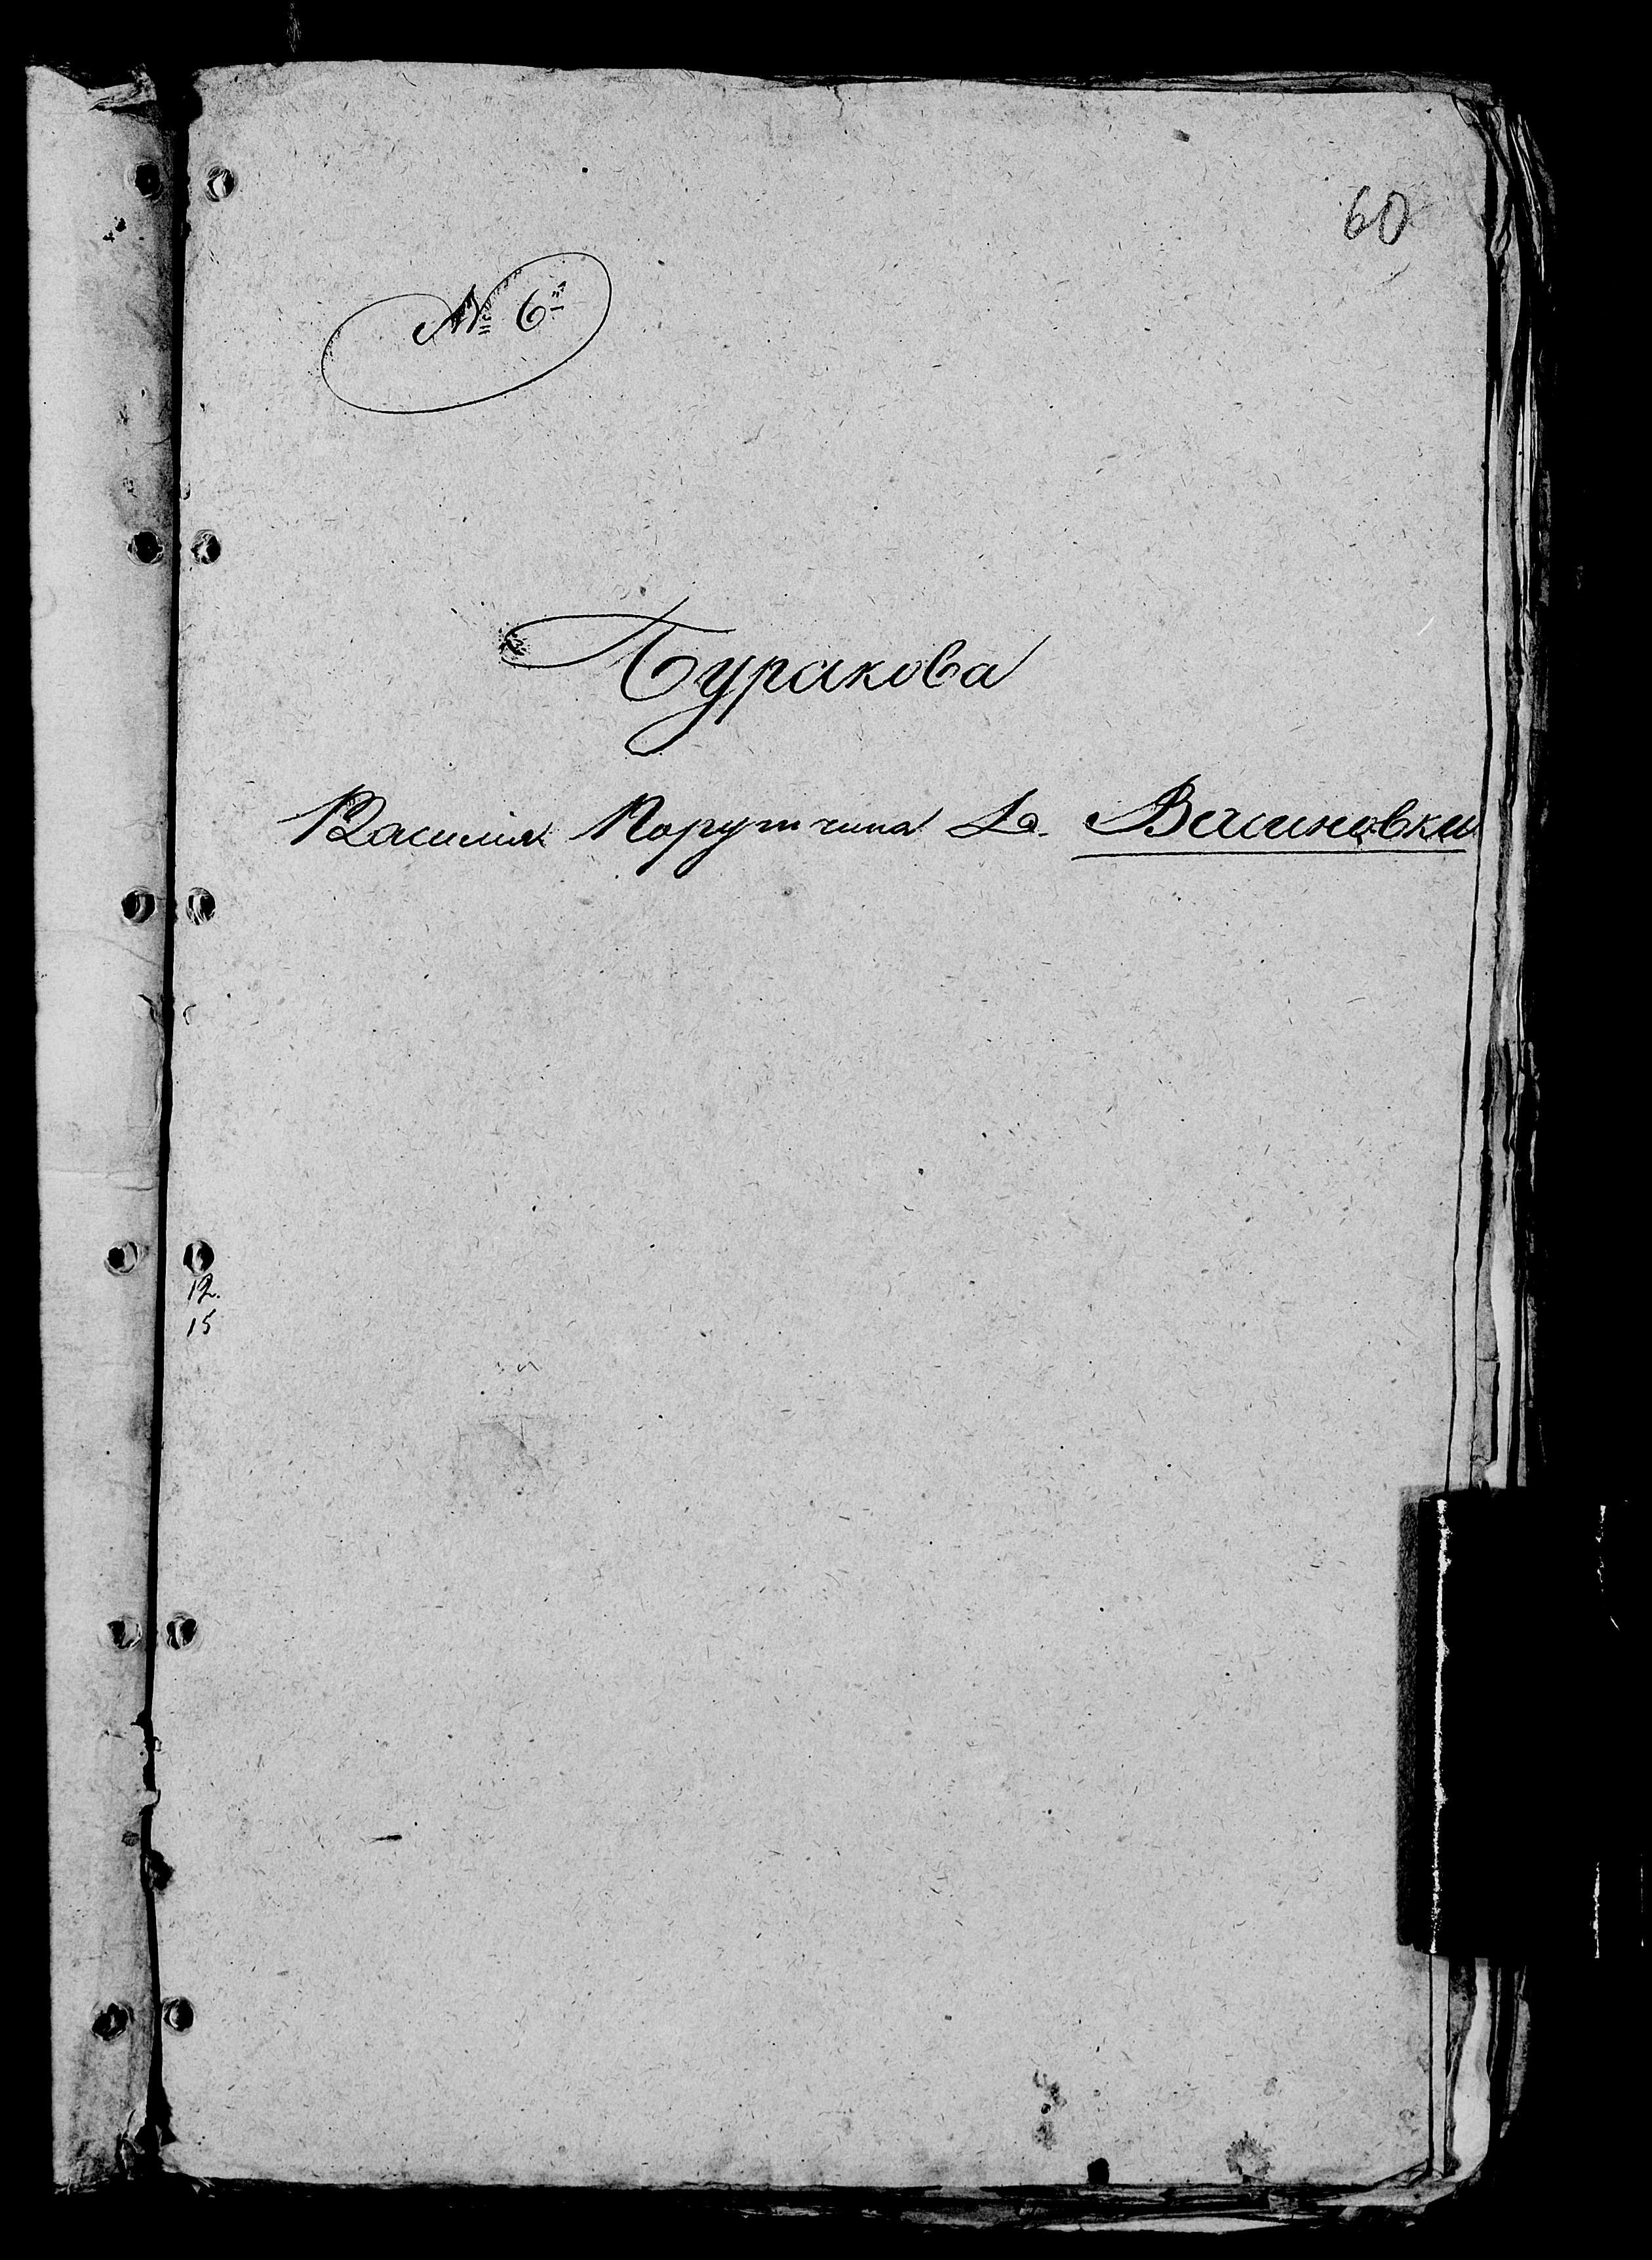 60
№ 6й
Буракова
Василия Порутчика Д. Васиновки
12.
15